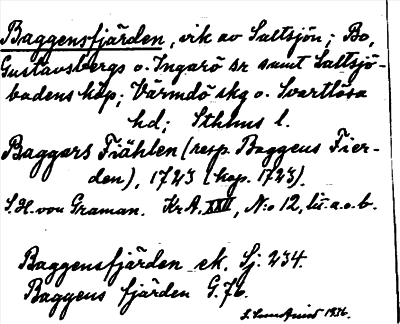 Baggensfjärden, vik av Saltsjön; Bo,
Gustavsbergs o. Ingarö sr samt Saltsjö-
badens köp; Värmdö skg o. Svartlösa
hd; Sthlms l.
Baggars Fiählen (resp. Baggeus Fier-
den), 1723 (kop. 1723).
S. H. von Graman. KrA, XXV, N:o 12, lit. a.o.b.
Baggensfjärden ek. Sj. 234.
Baggens fjärden G. 76.
1936.